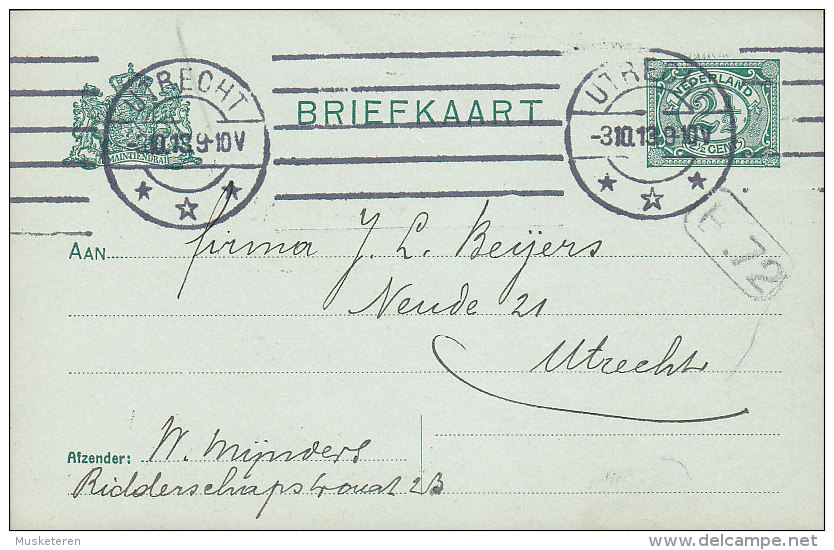 UTRECHT
-3.10.13.9-10V
MAINTIENDRAI
BRIEFKAART
UTRE
-3.10.13.9-10V
NEDERLAND
2½
2½ CENT
T
.72
AAN Firma J. L. Beijers
Neude 21
Utrecht
Afzender: W. Mijnders
Ridderschapstraat 2B
Musketeren
delcampe.net